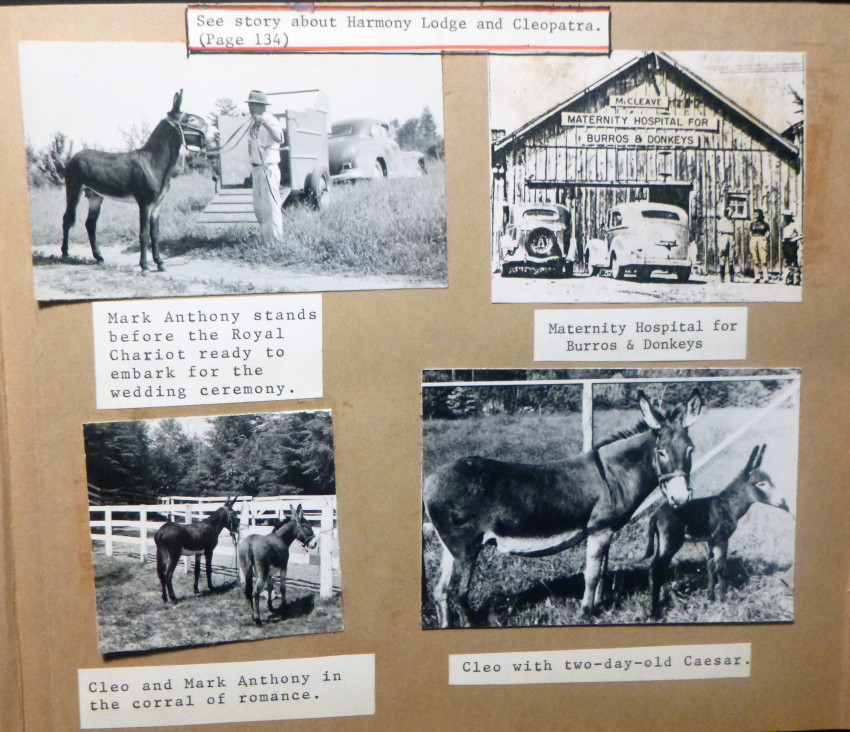 See story about Harmony Lodge and Cleopatra.
(Page 134)
McCLEAVE
MATERNITY HOSPITAL FOR
BURROS & DONKEYS
Mark Anthony stands
before the Royal
Chariot ready to
embark for the
wedding ceremony.
Maternity Hospital for
Burros & Donkeys
Cleo and Mark Anthony in
the corral of romance.
Cleo with two-day-old Caesar.